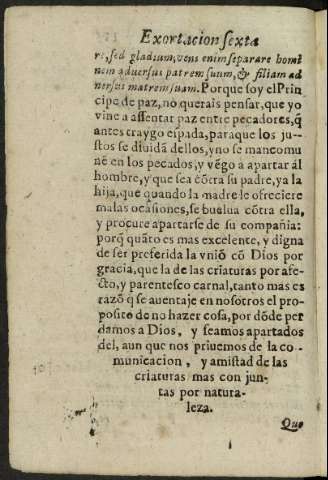 Exortacion sexta
re, sed gladium, veni enim separare homi
nem aduersus patrem suum, & filiam ad
uersus matrem suam. Porque soy el Prin
cipe de paz, no querais pensar, que yo
vine a assentar paz entre pecadores, q̃
antes traygo espada, paraque los ju-
stos se diuidã dellos, y no se mancomu
nẽ en los pecados, y vẽgo a apartar ál
hombre, y que sea cõtra su padre, ya la
hija, que quando la madre le ofreciere
malas ocasiones, se buelua cõtra ella,
y procure apartarse de su compañia:
porq̃ quãto es mas excelente, y digna
de ser preferida la vniõ cõ Dios por
gracia, que la de las criaturas por afe-
cto, y parentesco carnal, tanto mas es
razõ q̃ se auentaje en nosotros el pro-
posito de no hazer cosa, por dõde per
damos a Dios, y seamos apartados
del, aun que nos priuemos de la co-
municacion, y amistad de las
criaturas mas con jun-
tas por natura-
leza.
Que